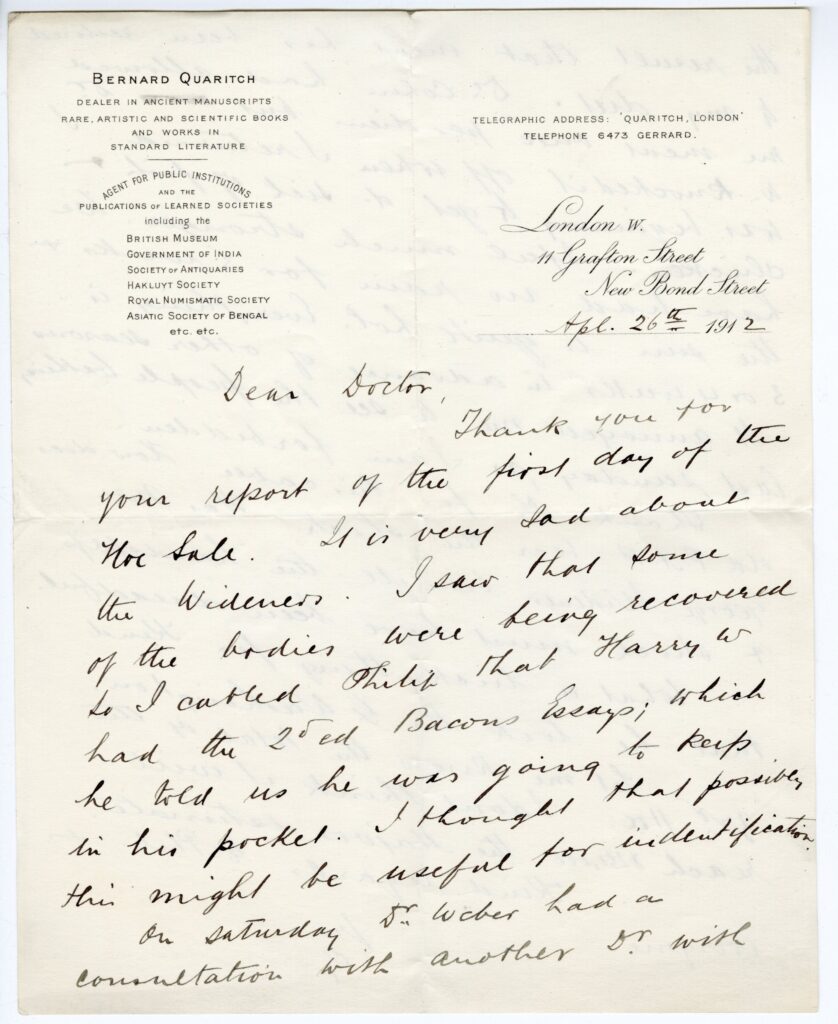 BERNARD QUARITCH
DEALER IN ANCIENT MANUSCRIPTS
RARE, ARTISTIC AND SCIENTIFIC BOOKS
AND WORKS IN
STANDARD LITERATURE
AGENT FOR PUBLIC INSTITUTIONS
AND THE
PUBLICATIONS OF LEARNED SOCIETIES
including the
BRITISH MUSEUM
GOVERNMENT OF INDIA
SOCIETY OF ANTIQUARIES
HAKLUYT SOCIETY
ROYAL NUMISMATIC SOCIETY
ASIATIC SOCIETY OF BENGAL
etc. etc.
TELEGRAPHIC ADDRESS: "QUARITCH, LONDON"
TELEPHONE 6473 GERRARD.
London W.
11 Grafton Street
New Bond Street
Apl. 26th 1912
Dear Doctor,
Thank you for
your report of the first day of the
Hoe Sale. It is very sad about
the Wideners. I saw that some
of the bodies were being recovered
so I cabled Philip that Harry W
had the 2d ed Bacons Essays; which
he told us he was going to keep
in his pocket. I thought that possibly
this might be useful for indentification.
On Saturday Dr. Weber had a
consultation with another Dr. with